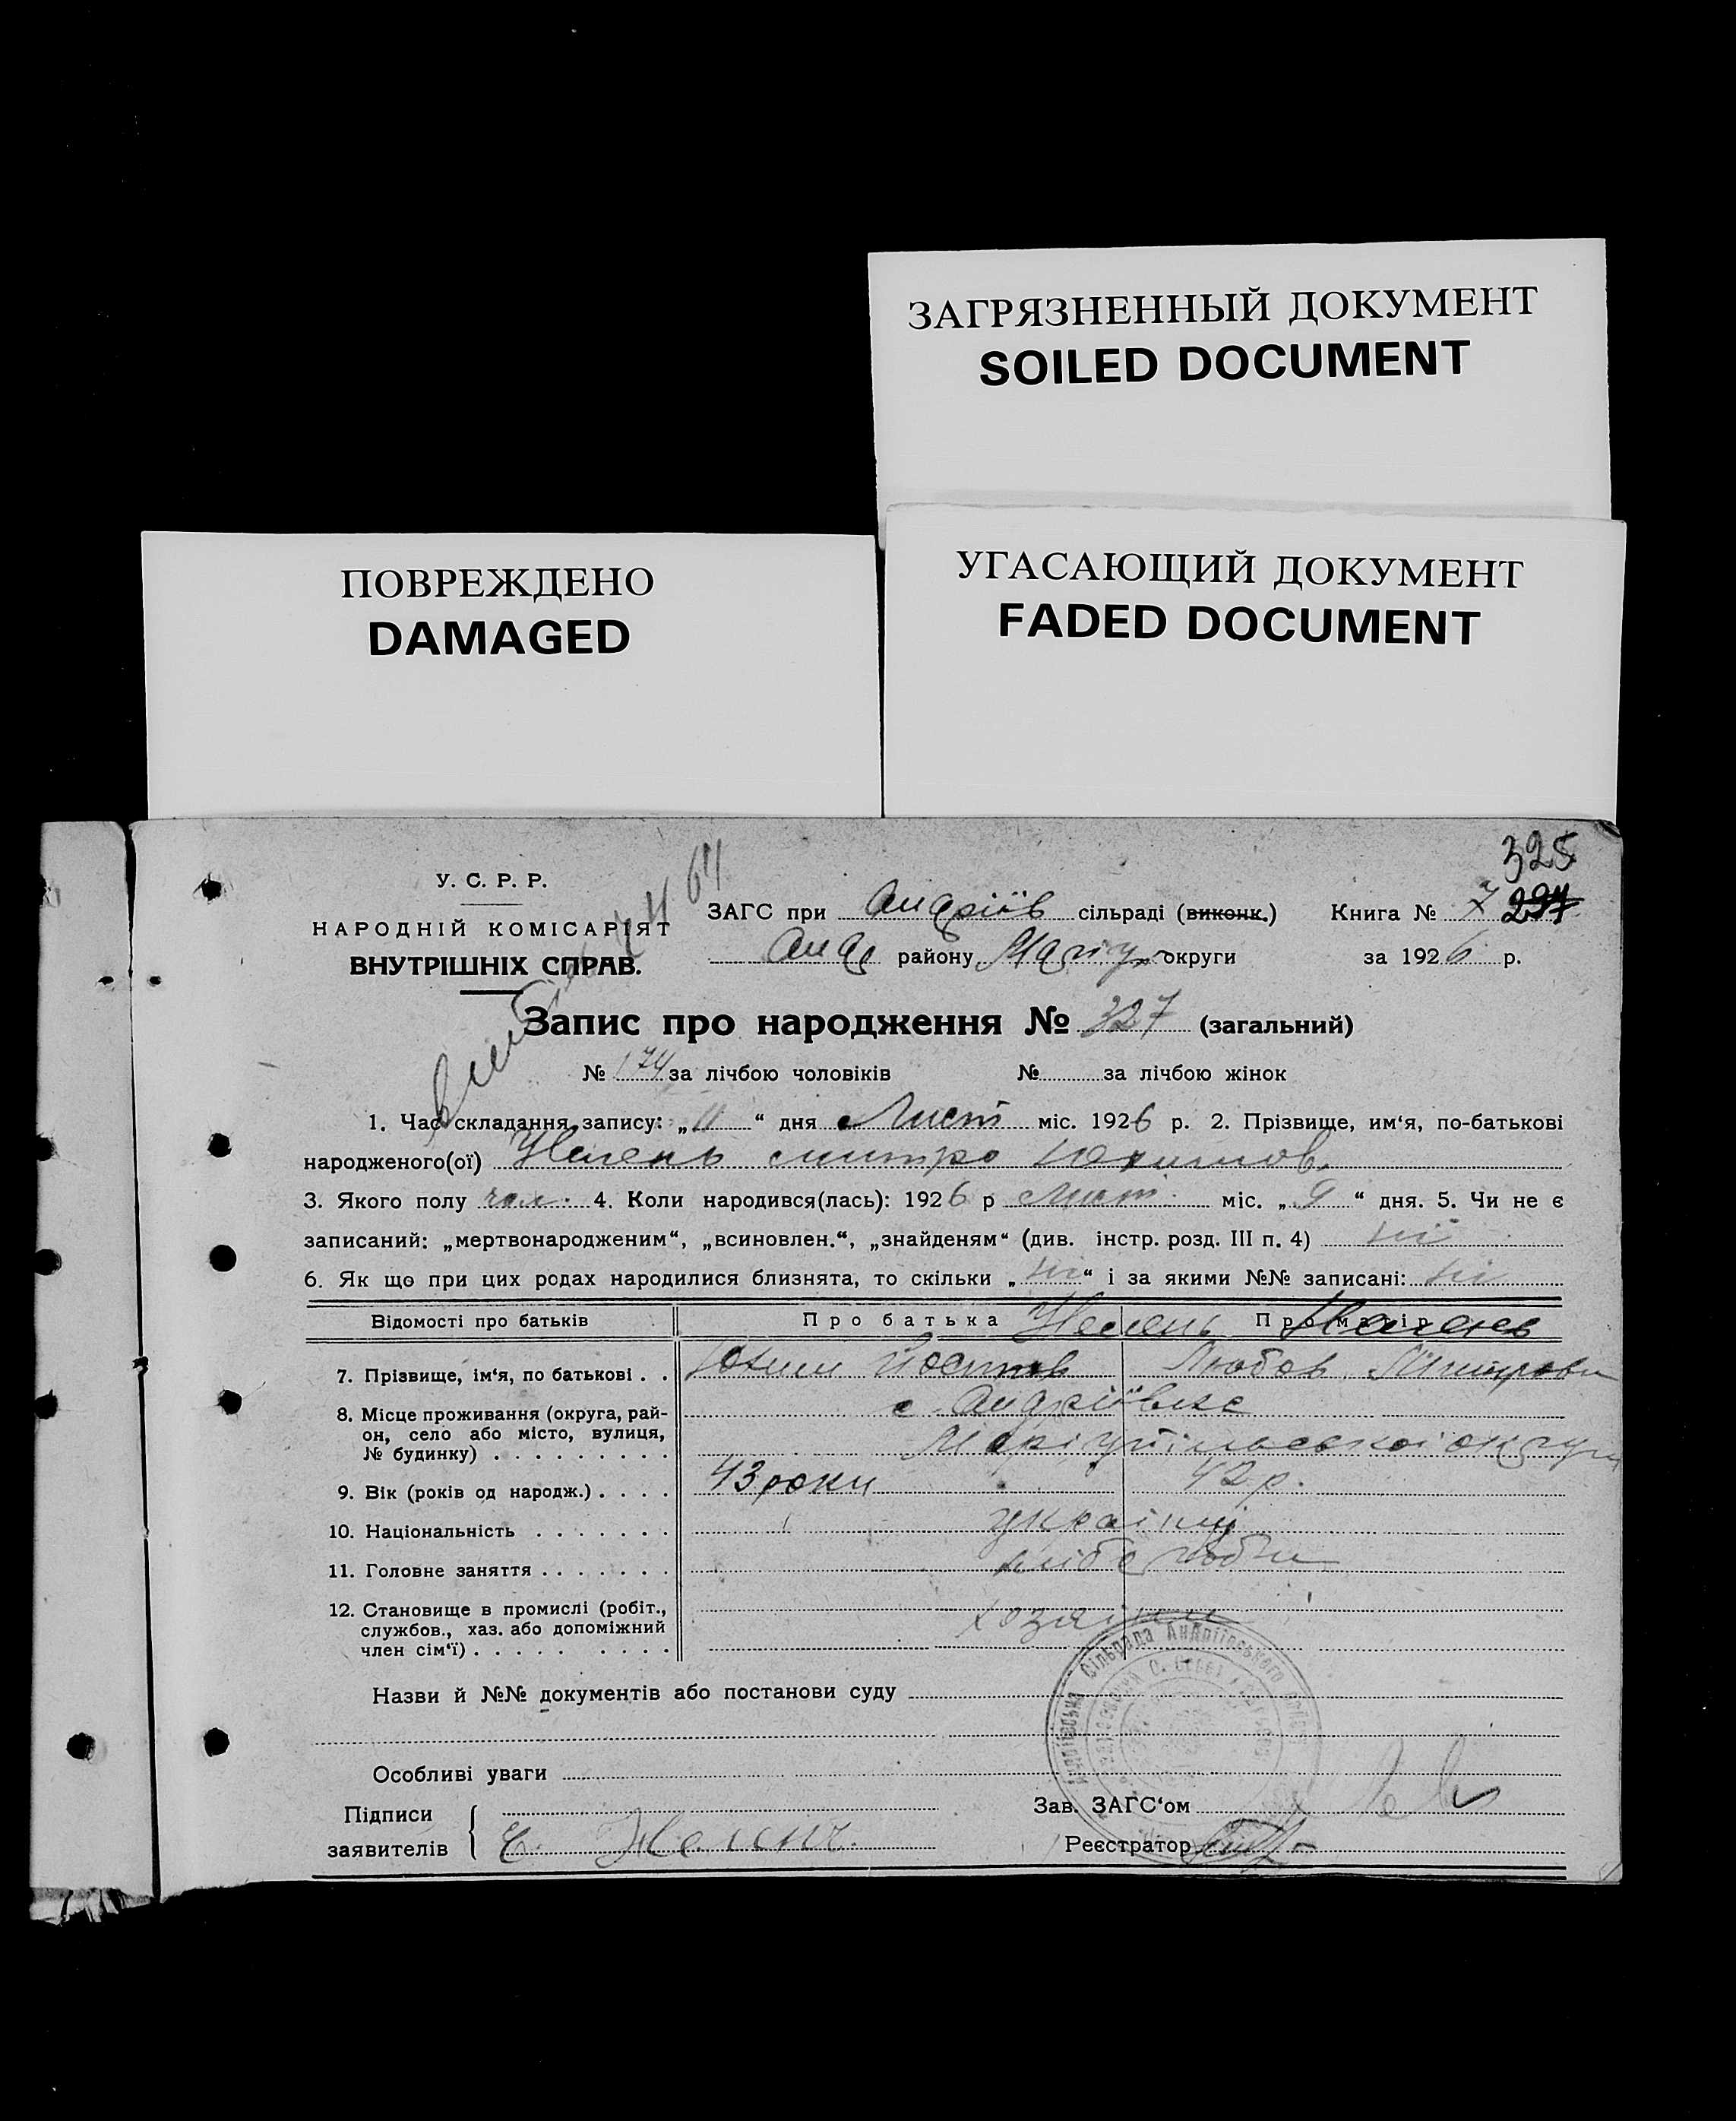 ЗАГРЯЗНЕННЫЙ ДОКУМЕНТ
SOILED DOCUMENT
ПОВРЕЖДЕНО
DAMAGED
УГАСАЮЩИЙ ДОКУМЕНТ
FADED DOCUMENT
325
У. С. Р. Р.
НАРОДНІЙ КОМІСАРІЯТ
ВНУТРІШНІХ СПРАВ.
ЗАГС при Андріїв сільраді (виконк.) Книга № 7 297
Анд району Маріуп округи за 1926 р.
Запис про народження № 327 (загальний)
№ 174 за лічбою чоловіків № за лічбою жінок
1. Час складання запису: „11“ дня Лист міс. 1926 р. 2. Прізвище, им‘я, по-батькові
народженого(ої) митро
3. Якого полу чол. 4. Коли народився(лась): 1926 р Лист. міс. „9“ дня. 5. Чи не є
записаний: „мертвонародженим“, „всиновлен.“, „знайденям“ (див. інстр. розд. III п. 4) ні
6. Як що при цих родах народилися близнята, то скільки „ні“ і за якими №№ записані: ні
Відомості про батьків Про батька Про матір
7. Прізвище, ім‘я, по батькові . . Любов
8. Місце проживання (округа, рай-
он, село або місто, вулиця,
№ будинку) . . . . . . . . .
с. Андріївка
Маріупільської округи
9. Вік (років од народж.) . . . . 43 роки 42 р.
10. Національність . . . . . . . українці
11. Головне заняття . . . . . . . хлібороби
12. Становище в промислі (робіт.,
службов., хаз. або допоміжний
член сім‘ї) . . . . . . . . .
хозяїни
Назви й №№ документів або постанови суду
Особливі уваги
Підписи
заявителів
Зав. ЗАГС‘ом
Реєстратор
Сільрада Андріївського